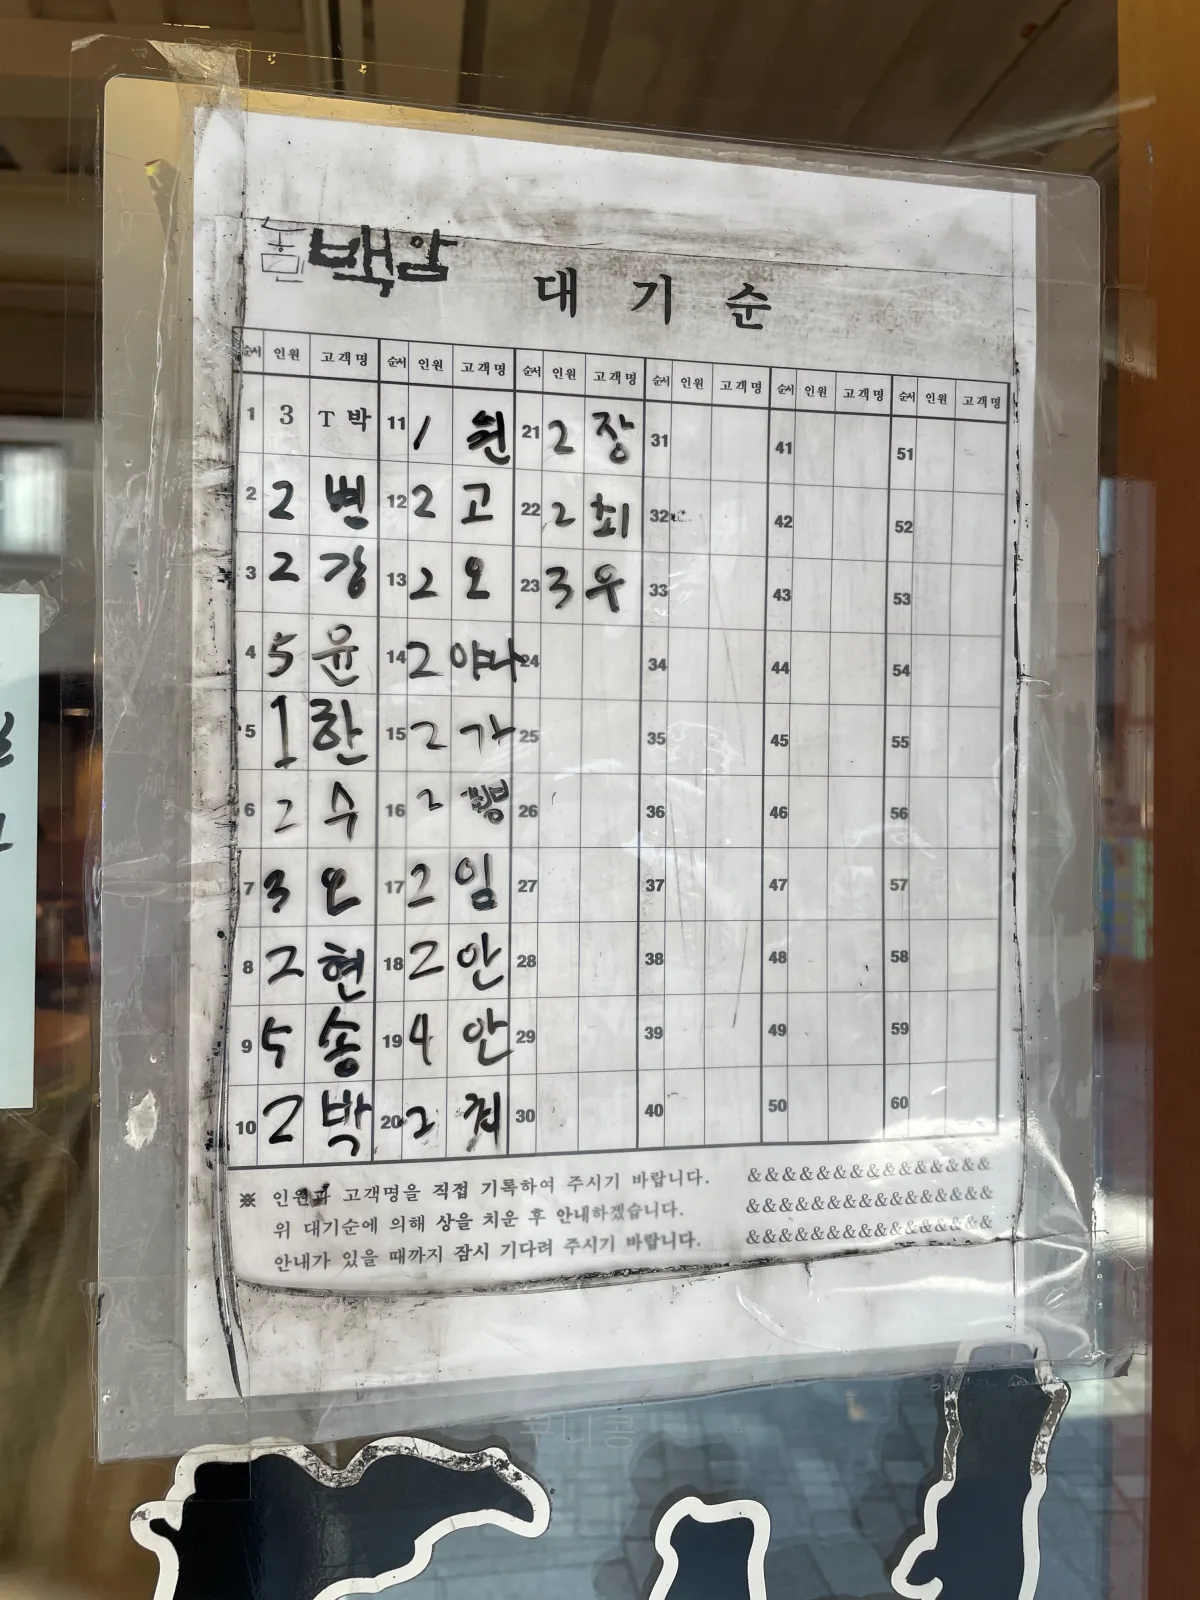 백암
대 기 순
순서 인원 고객명 순서 인원 고객명 순서 인원 고객명 순서 인원 고객명 순서 인원 고객명 순서 인원 고객명
1 3 T 박 11 1 원 21 2 장 31 41 51
2 2 변 12 2 고 22 2 최 32 42 52
3 2 강 13 2 오 23 3 우 33 43 53
4 5 윤 14 2 야나 24 34 44 54
5 1 한 15 2 가 25 35 45 55
6 2 수 16 2 26 36 46 56
7 3 오 17 2 임 27 37 47 57
8 2 현 18 2 안 28 38 48 58
9 5 송 19 4 안 29 39 49 59
10 2 박 20 2 30 40 50 60
※ 인원과 고객명을 직접 기록하여 주시기 바랍니다. &&&&&&&&&&&&&&&
위 대기순에 의해 상을 치운 후 안내하겠습니다. &&&&&&&&&&&&&&&
안내가 있을 때까지 잠시 기다려 주시기 바랍니다. &&&&&&&&&&&&&&&